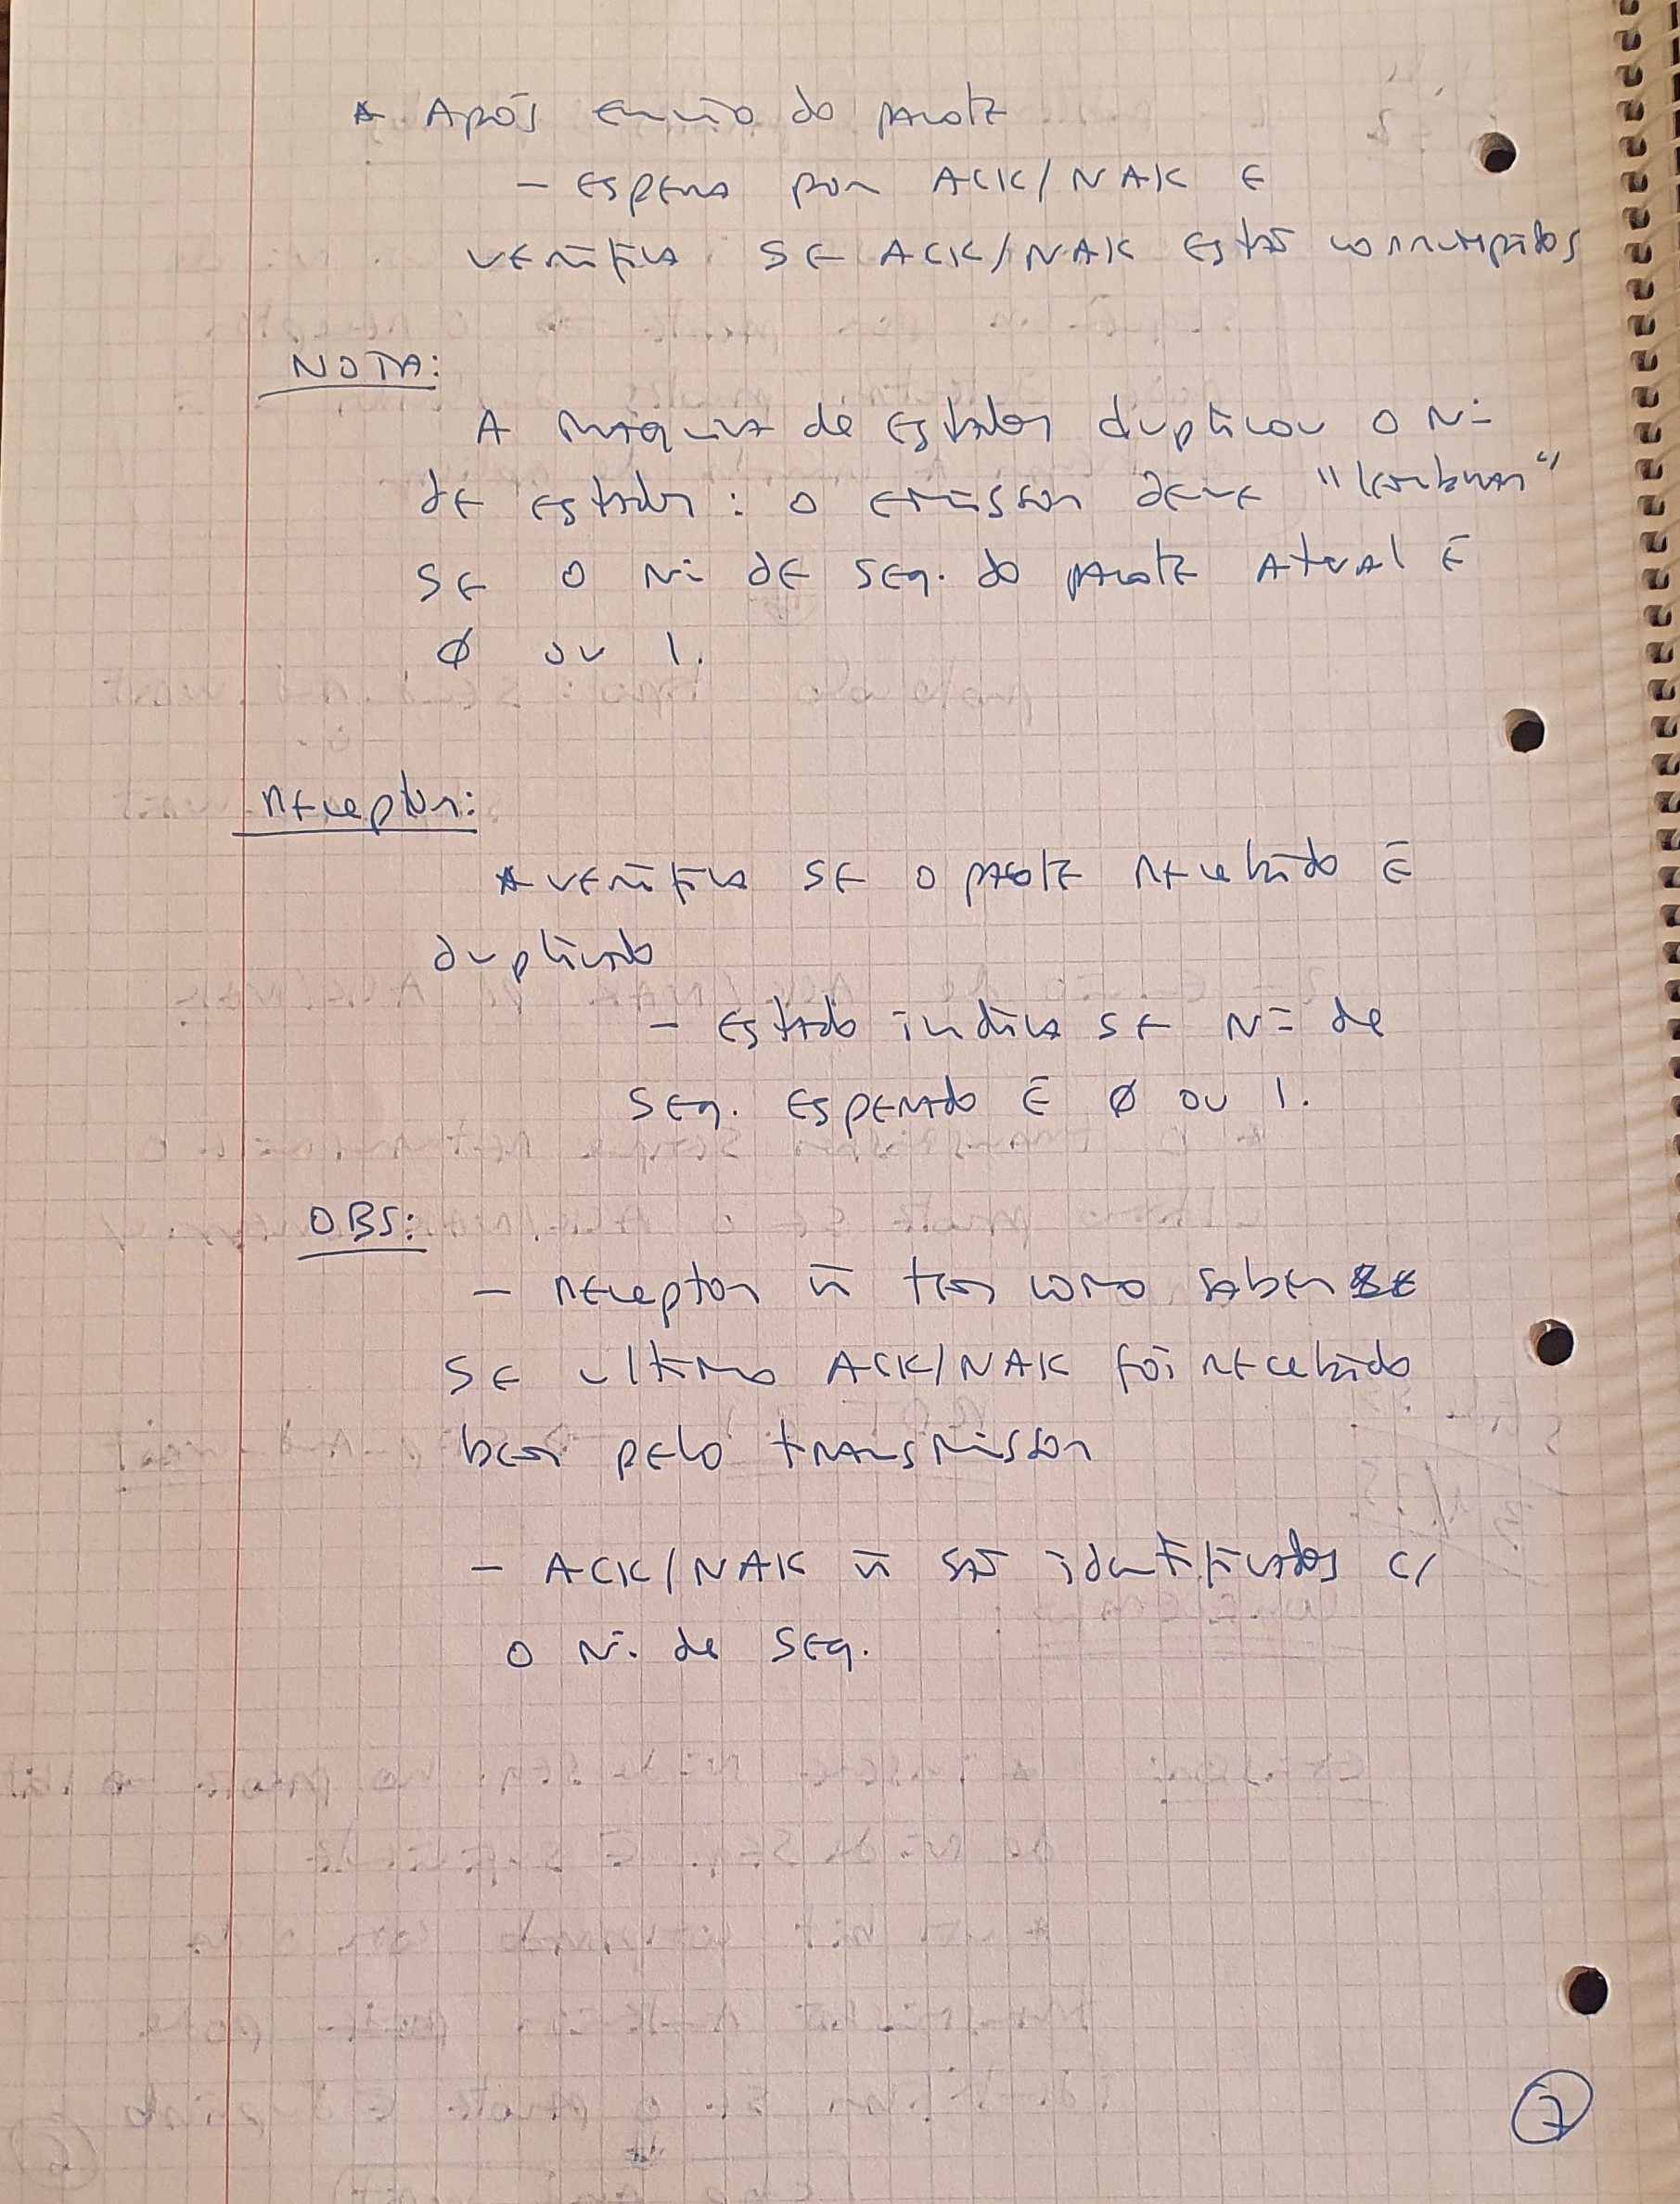 * Após envio do pacote
- espera por ACK/NAK e
verifica se ACK/NAK estão corrompidos
NOTA:
A máquina de estados duplicou o Nº
de estados: o emissor deve "lembrar"
se o Nº de seq. do pacote atual é
0 ou 1.
Receptor:
* verifica se o pacote recebido é
duplicado
- Estado indica se Nº de
seq. esperado é 0 ou 1.
OBS:
- Receptor ñ tem como saber
se ultimo ACK/NAK foi recebido
bem pelo transmissor
- ACK/NAK ñ são identificados c/
o Nº de seq.
7